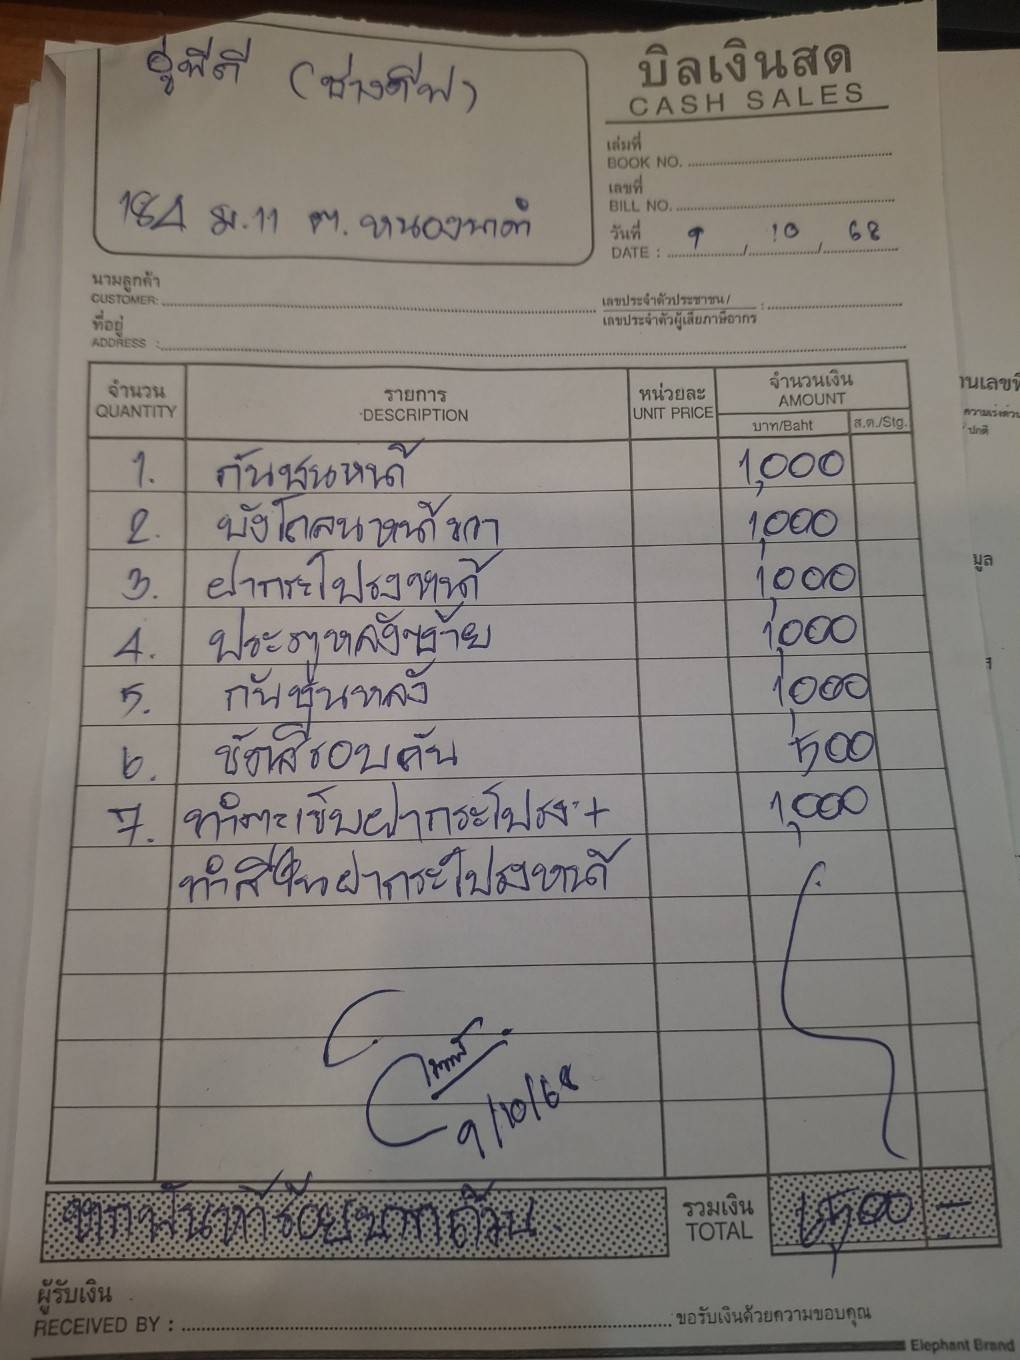 อู่พีดี (ช่างดีฟ)
184 ม.11 ต.หนองนาคำ
บิลเงินสด
CASH SALES
เล่มที่
BOOK NO.
เลขที่
BILL NO.
วันที่
DATE : 9 / 10 / 68
นามลูกค้า
CUSTOMER:
เลขประจำตัวประชาชน/
เลขประจำตัวผู้เสียภาษีอากร :
ที่อยู่
ADDRESS :
จำนวน รายการ หน่วยละ จำนวนเงิน
QUANTITY DESCRIPTION UNIT PRICE AMOUNT
บาท/Baht ส.ต./Stg.
1. กันชนหน้า 1,000
2. บังโคลนหน้าขวา 1,000
3. ฝากระโปรงหน้า 1,000
4. ประตูหลังซ้าย 1,000
5. กันชนหลัง 1,000
6. ขัดสีรอบคัน 500
7. ทำตะเข็บฝากระโปรง + 1,000
ทำสีในฝากระโปรงหน้า
9/10/68
หกพันห้าร้อยบาทถ้วน
รวมเงิน
TOTAL 6,500 -
ผู้รับเงิน
RECEIVED BY :
ขอรับเงินด้วยความขอบคุณ
Elephant Brand
านเลขที่
ความเร่งด่วน
ปกติ
มูล